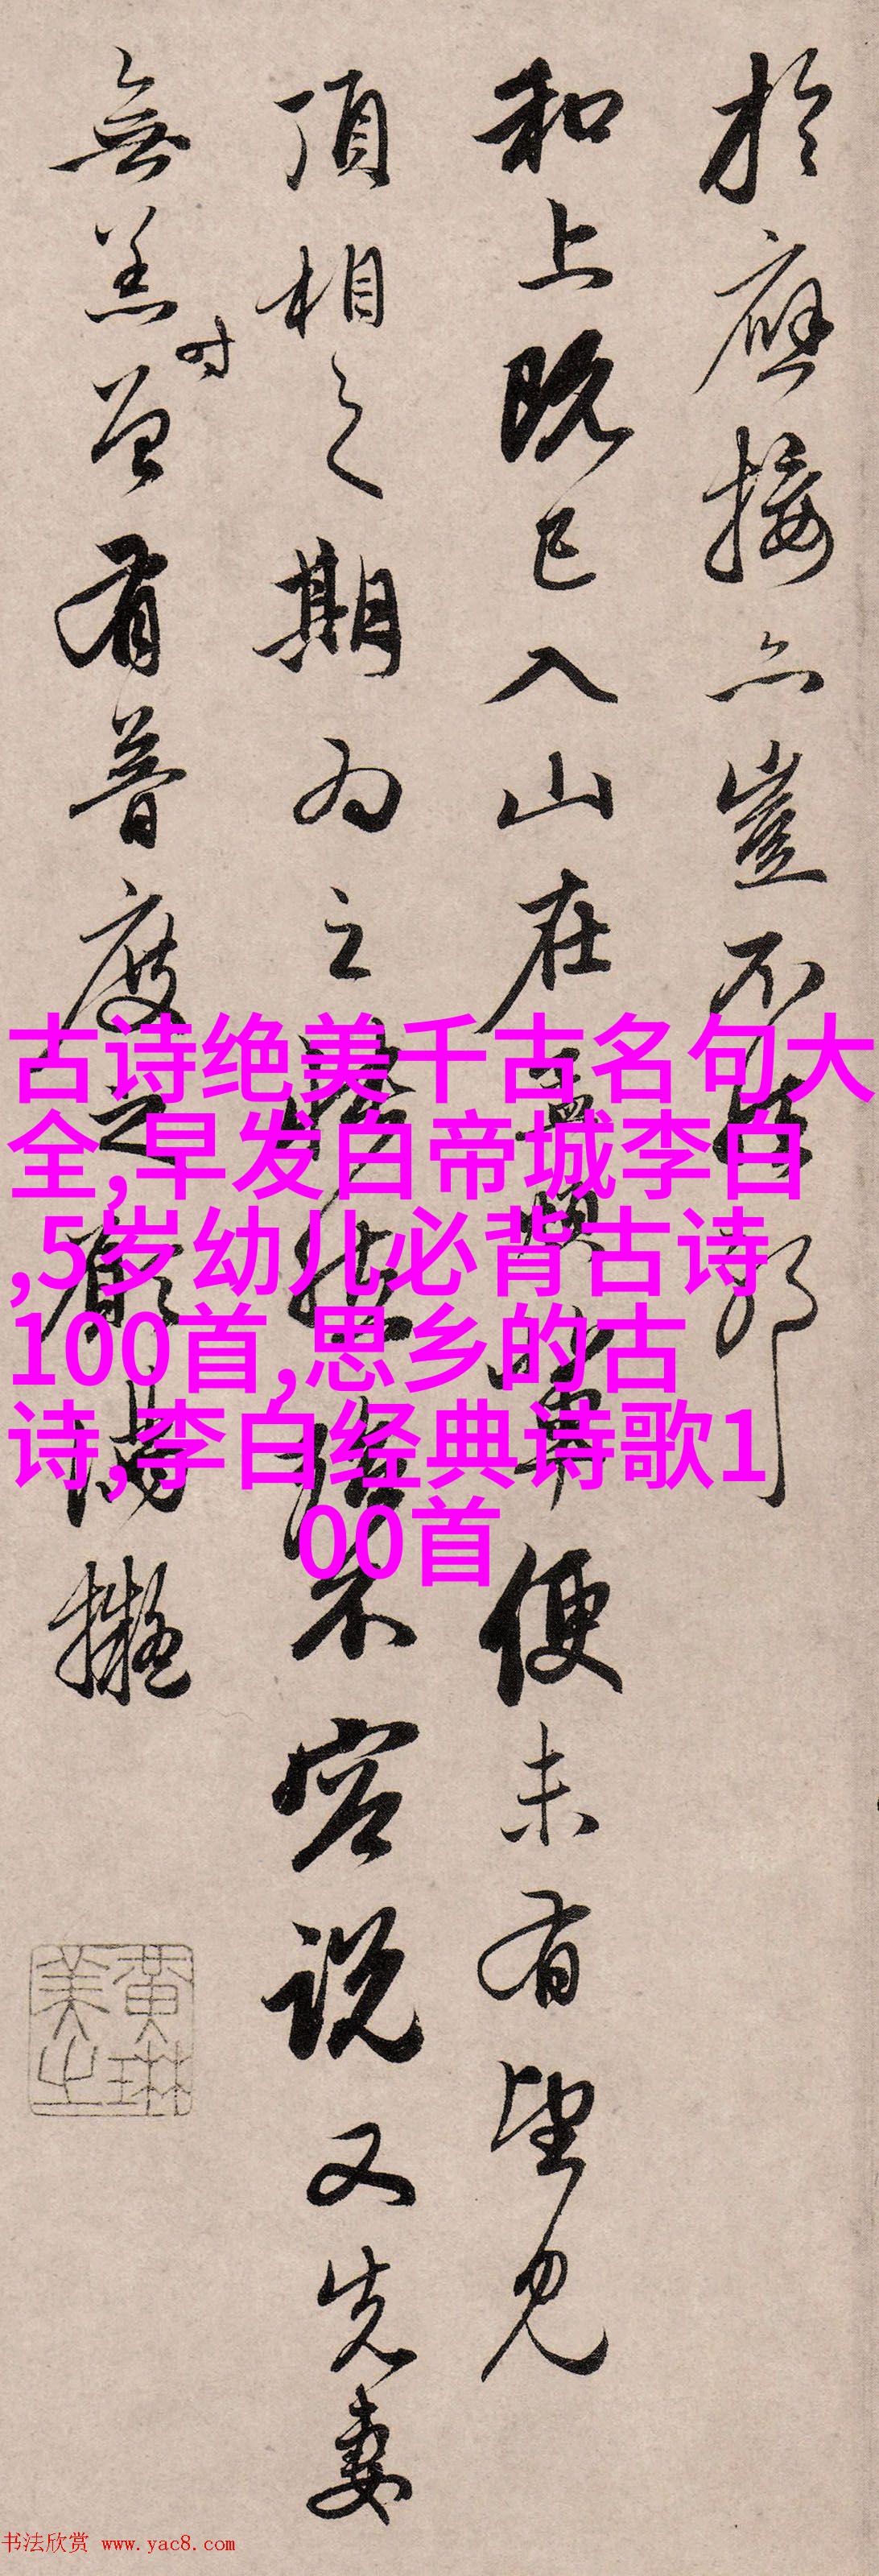 於應接亦豈不
和上既已入山在
便未有望見
頂相之期為之
不容說又先妻
無恙时曾有普度之願
擬
古诗绝美千古名句大
全,早发白帝城李白
,5岁幼儿必背古诗
100首,思乡的古
诗,李白经典诗歌1
00首
黄琳
美之
书法欣赏 www.yac8.com